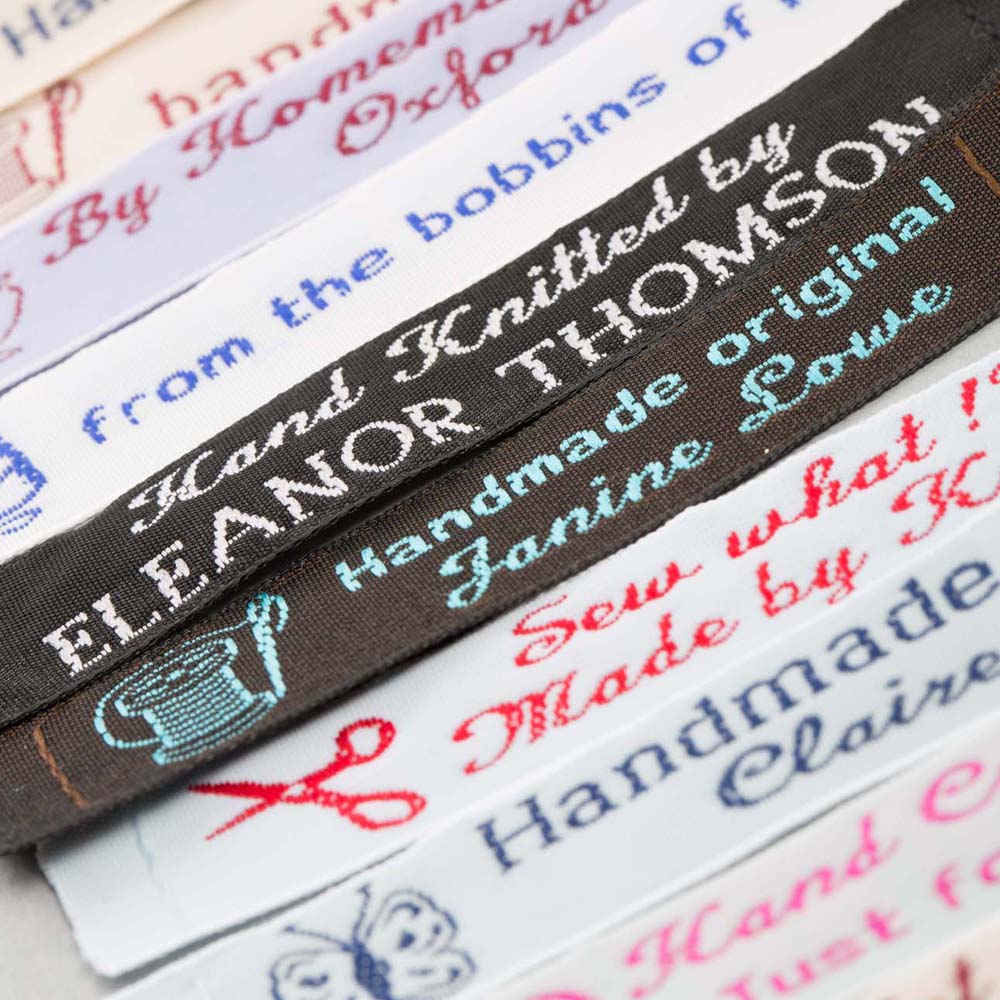 Ha
handm
By Homema
Oxford
from the bobbins of
Hand Knitted by
ELEANOR THOMSON
Handmade original
Janine Lowe
Sew what !?
Made by K
Handmade
Claire
Hand C
Just fo